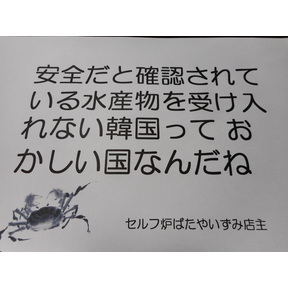 安全だと確認されて
いる水産物を受け入
れない韓国って お
かしい国なんだね
セルフ炉ばたやいずみ店主